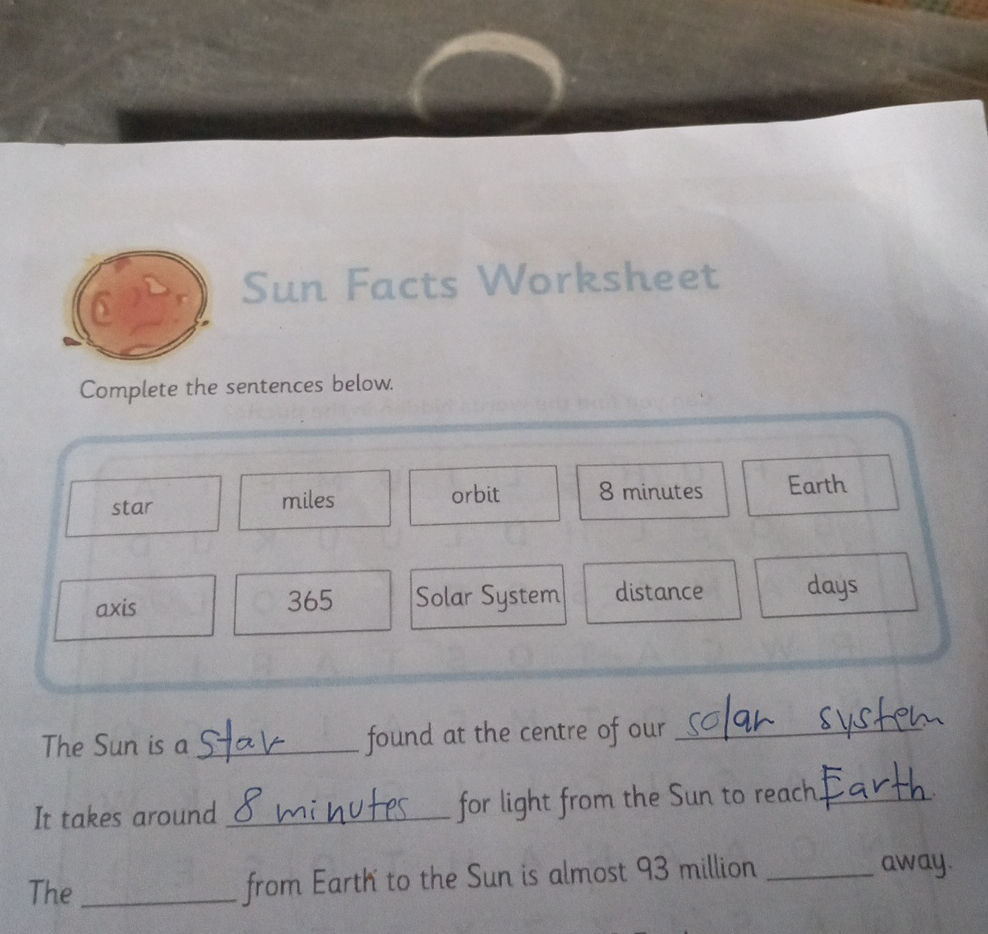 Sun Facts Worksheet
Complete the sentences below.
star miles orbit 8 minutes Earth
axis 365 Solar System distance days
The Sun is a star found at the centre of our solar system
It takes around 8 minutes for light from the Sun to reach Earth.
The ________ from Earth to the Sun is almost 93 million ________ away.